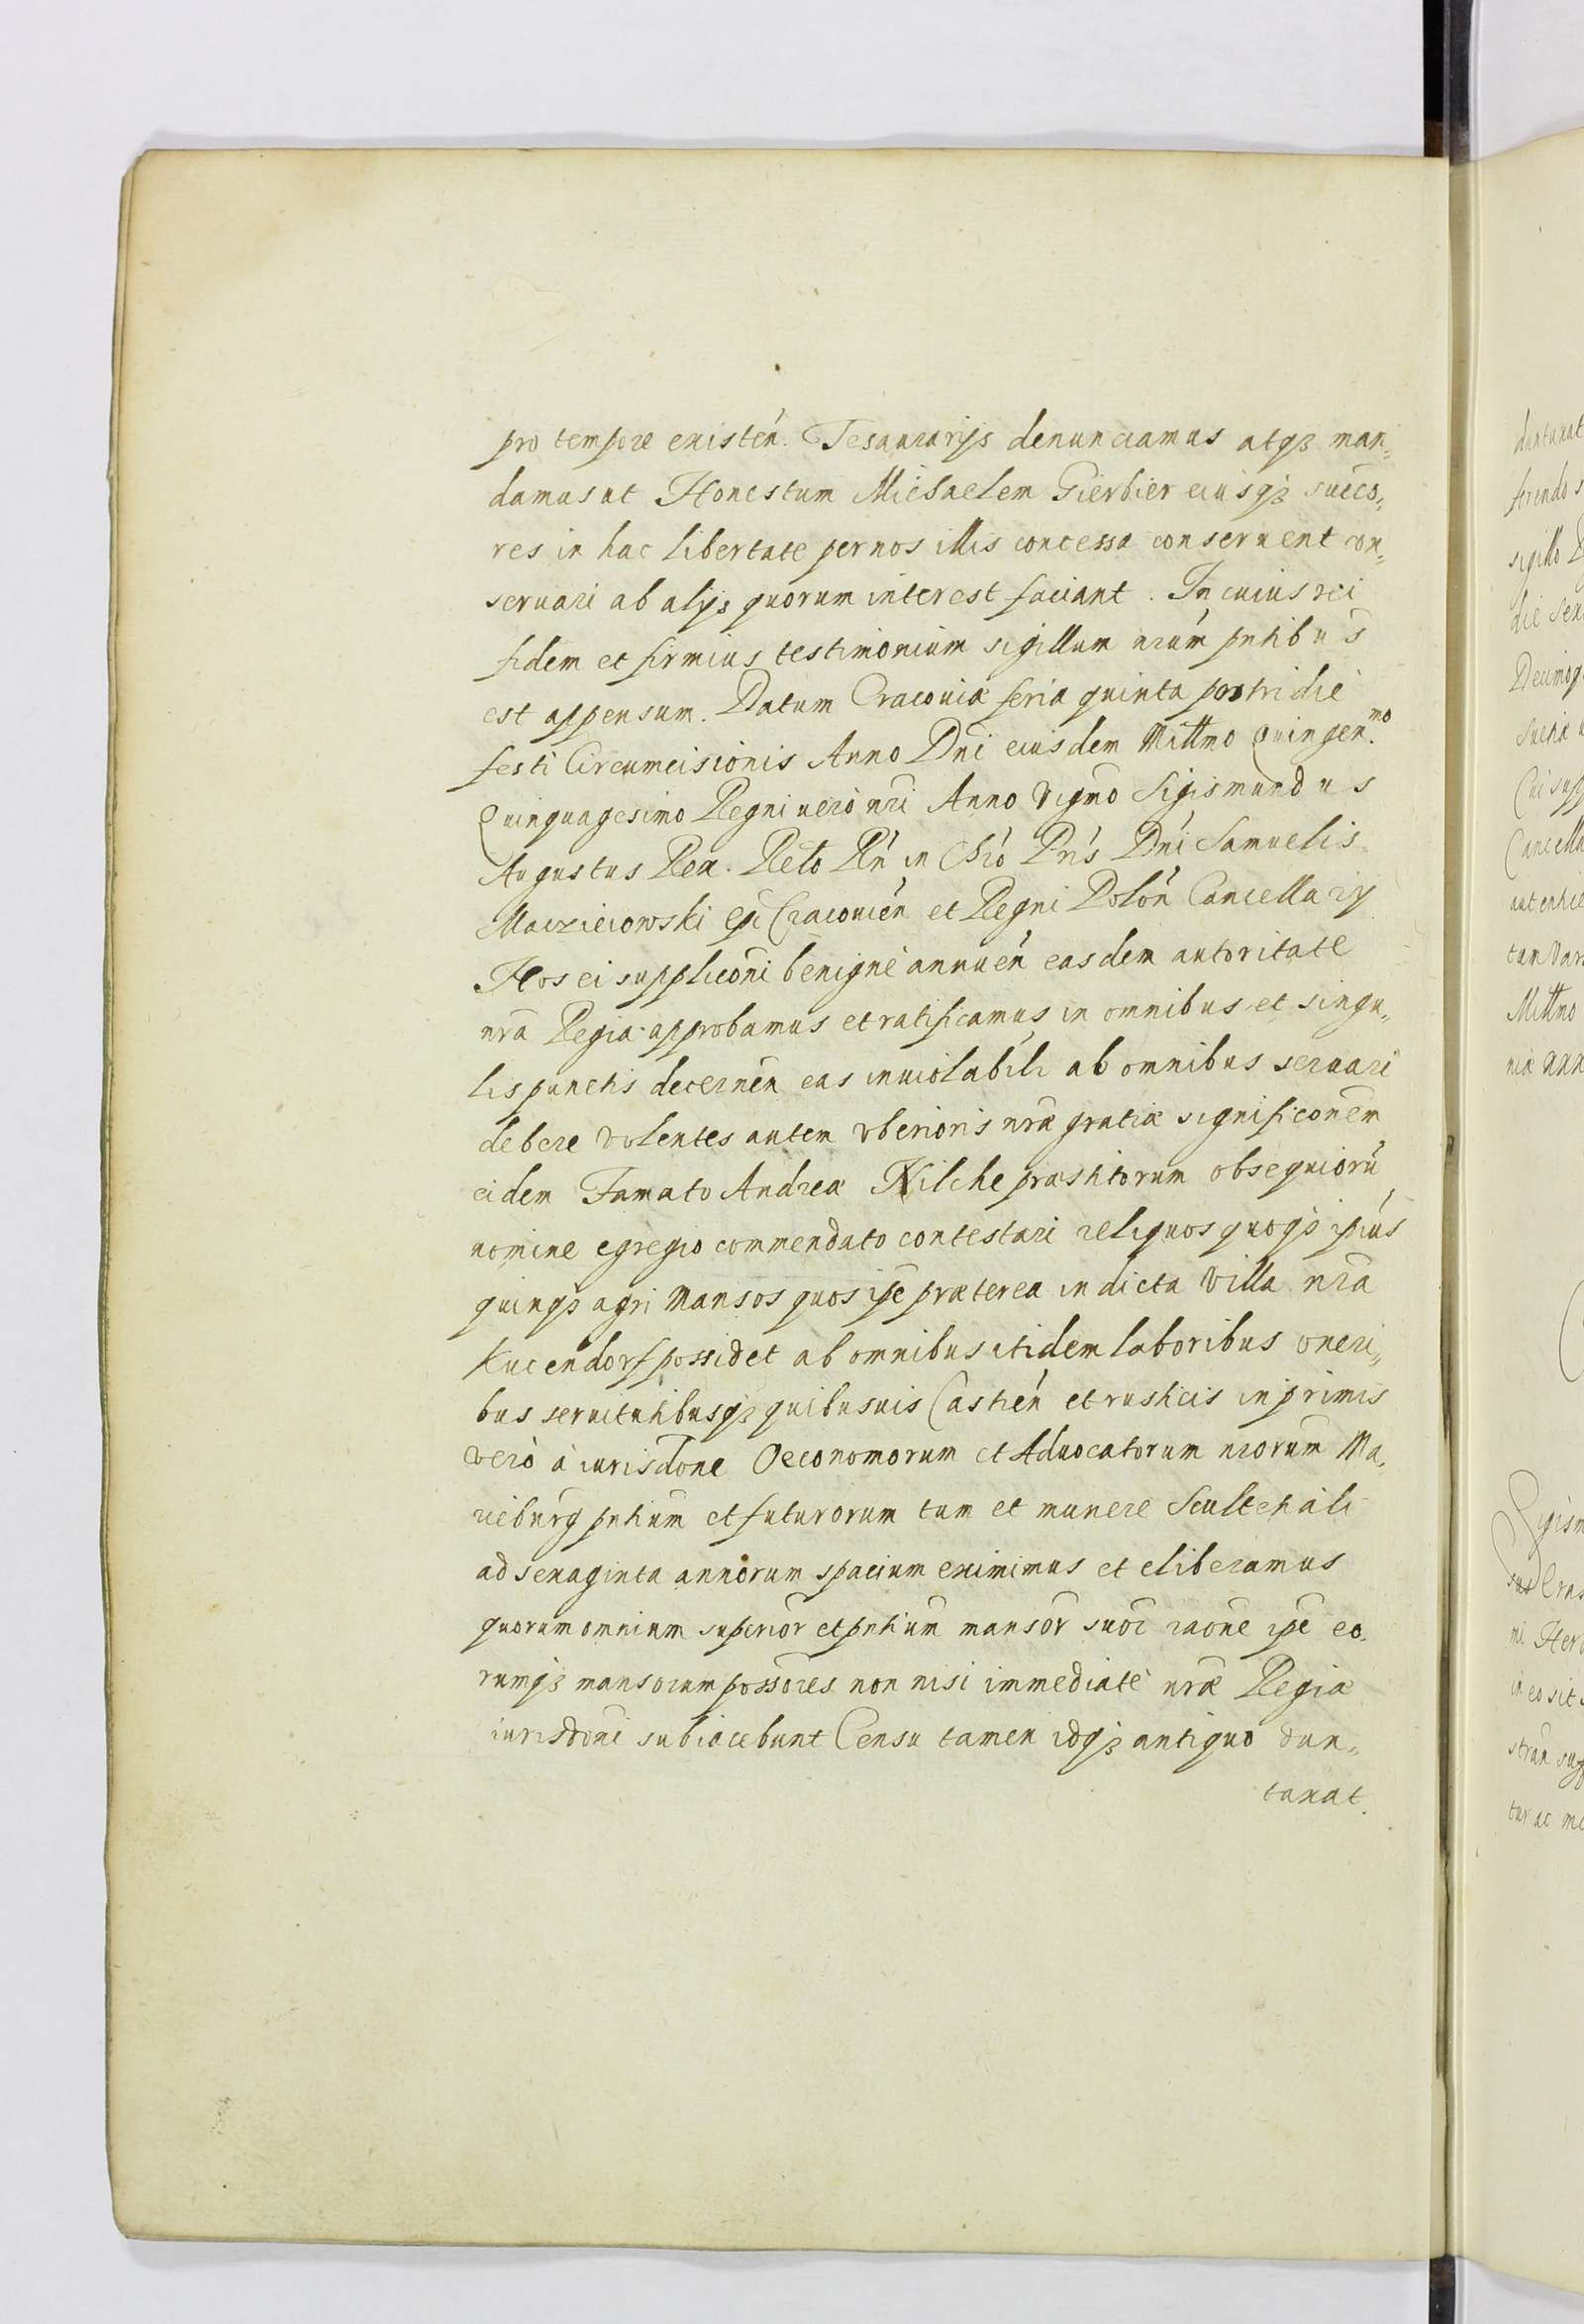 pro tempore existeń. Tesaurarijs denunciamus atq₃ man„
damus ut Honestum Michaelem Gierbier eiusq₃ succō„
res in hac libertate per nos illis concessa conseruent con„
seruari ab alijs quorum interest faciant. In cuius rei
fidem et firmius testimonium sigillum nrūm pntibūs
est appensum. Datum Cracouiæ feria quinta postridie
festi Circumcisionis Anno Dni eiusdem Millmo Quingen.mo
Quinquagesimo Regni uero nri Anno Vigmo Sigismundus
Augustus Rex. Relo Rń in Chró Pris Dni Samuelis
Maczieiowski Epi Cracouień et Regni Poloń Cancellarij
Nos ei supplicōni benigne annueń easdem autoritate
nrā Regia approbamus et ratificamus in omnibus et singu„
lis punctis decerneń eas inuiolabili ab omnibus seruari
debere volentes autem vberioris nræ gratiæ significonem
eidem Famato Andreæ Nilche præstitorum obsequiorū
nomine egregio commendato contestari reliquos quoq₃ ipius
quinq₃ agri Mansos quos ipe præterea in dicta Villa nrā
Kucendorf possidet ab omnibus itidem laboribus oneri„
bus seruitutibusq₃ quibusuis Castreń et rusticis inprimis
verò à iurisdone Oeconomorum et Aduocatorum nrorum Ma„
rieburg pntium et futurorum tum et munere Scultetiali
ad sexaginta annorum spacium eximimus et eliberamus
quorum omnium superior et pntium mansor̄ suor̄ raōne ipe eo„
rumq₃ mansorum possōres non nisi immediatè nræ Regiæ
iurisdōni subiacebunt Censu tamen idq₃ antiquo dun„
taxat.
duntaxat
ferendo s
sigillo
die
Decimoq
Cui supp
Cancella
aut
tum
Millmo
niæ
Sigism
mi Her
in eo sit
stram sup
tur ac me